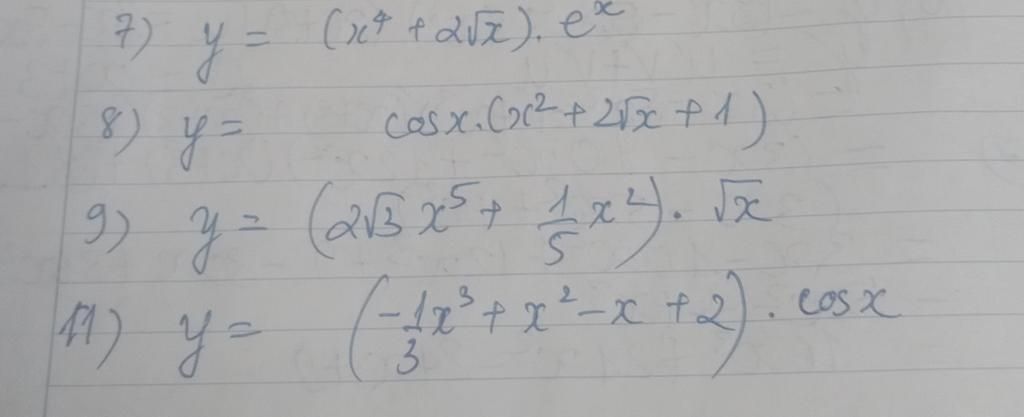 7) y = (x⁴ + 2√x). eˣ
8) y = cosx.(x² + 2√x + 1)
9) y = (2√3 x⁵ + 1/5 x²). √x
11) y = (-1/3 x³ + x² - x + 2). cosx